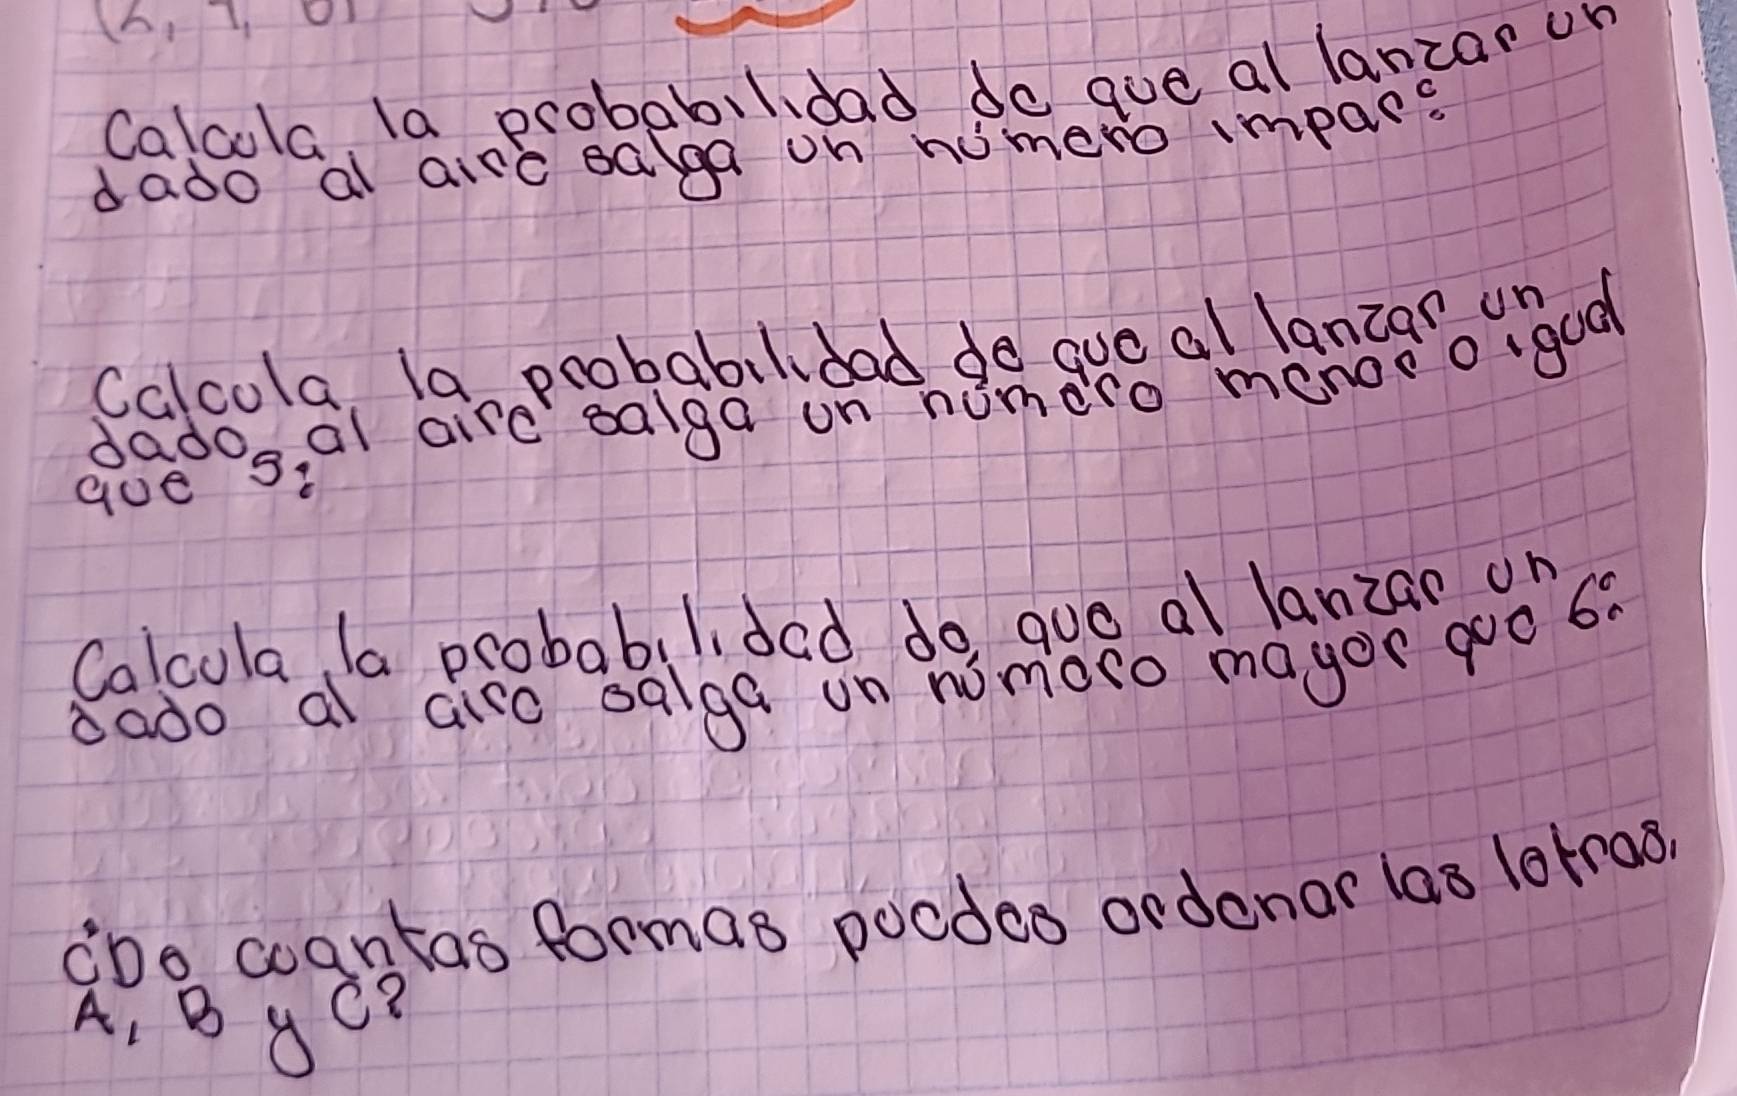 Calcula la probabilidad de que al lanzar un
dado al aire salga un número impar:
Calcula la probabilidad de que al lanzar un
dado al aire salga un número menor o igual
que 5:
Calcula la probabilidad de que al lanzar un
dado al aire salga un número mayor que 6:
¿De cuantas formas puedes ordenar las letras,
A, B y C?